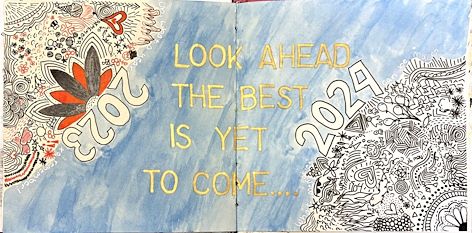 2023
LOOK AHEAD
THE BEST
IS YET
TO COME....
2024